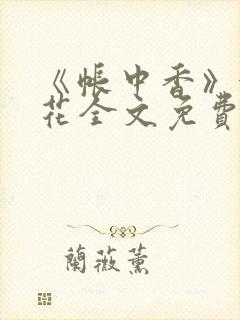 《帳中香》
花全文免費
蘭薇薰